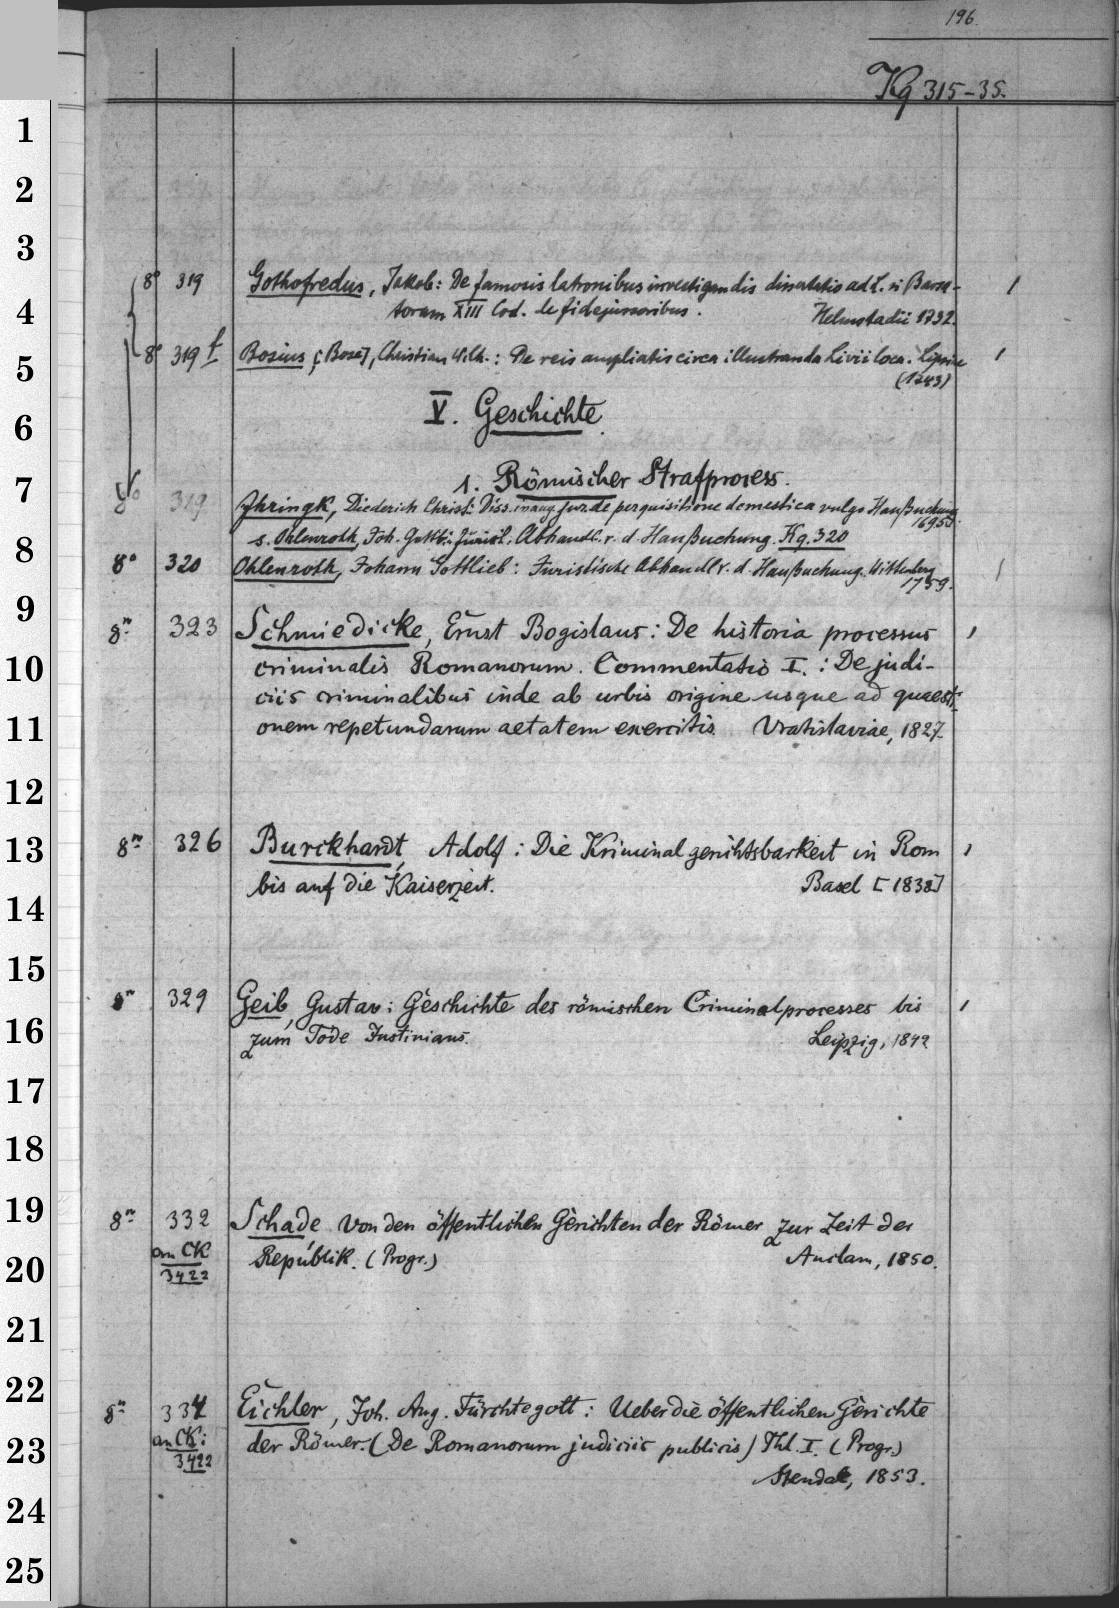 196.
Kg 315-35.
1
2
3
8° 319 Gothofredus, Jakob: De famosis latronibus investigandis dissertatio ad L.
4
XIII Cod. de fidejussoribus. Helmstadii 1732.
8° 319 f Bosius [: Bose], Christian Wilh.: De reis ampliatis circa illustranda Livii loca. Lipsiae
5
(1743)
V. Geschichte.
6
1. Römischer Strafprocess.
7
8° 319 Jhringk, Diederich Christ: Diss. inaug. jur. de perquisitione domestica vulgo Haußuchung.
1695.
s. Ohlenroth, Joh. Gottl.: Jurist. Abhandl. v. d. Haußuchung. Kg. 320
8
8° 320 Ohlenroth, Johann Gottlieb: Juristische Abhandl. v. d. Haußuchung. Wittenberg
1759.
9
8° 323 Schmiedicke, Ernst Bogislaus: De historia processus
10
criminalis Romanorum. Commentatio I.: De judi-
ciis criminalibus inde ab urbis origine usque ad quaesti-
11
onem repetundarum aetatem exercitis Vratislaviae, 1827.
12
13
8° 326 Burckhardt, Adolf: Die Kriminalgerichtsbarkeit in Rom
bis auf die Kaiserzeit. Basel [1838]
14
15
8° 329 Geib, Gustav: Geschichte des römischen Criminalprocesses bis
16
zum Tode Justinians. Leipzig, 1842
17
18
19
8° 332 Schade Von den öffentlichen Gerichten der Römer zur Zeit der
an CK Republik. (Progr.) Anclam, 1850.
20
3422
21
22
8° 334 Eichler, Joh. Aug. Fürchtegott: Ueber die öffentlichen Gerichte
23
an CK: der Römer. (De Romanorum judiciis publicis) Thl. I. (Progr.)
3422
Stendal, 1853.
24
25